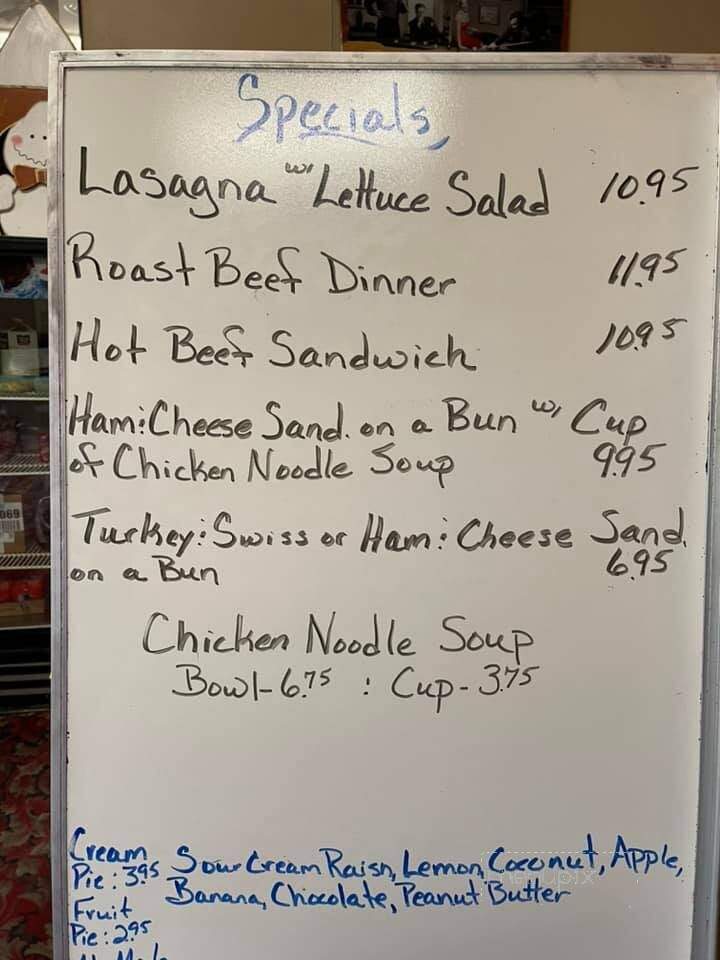 Specials
Lasagna w/ Lettuce Salad 10.95
Roast Beef Dinner 11.95
Hot Beef Sandwich 10.95
Ham: Cheese Sand. on a Bun w/ Cup
of Chicken Noodle Soup 9.95
Turkey: Swiss or Ham: Cheese Sand.
on a Bun 6.95
Chicken Noodle Soup
Bowl-6.75 : Cup-3.75
Cream
Pie: 3.95 Sour Cream Raisn, Lemon, Coconut, Apple,
Banana, Chocolate, Peanut Butter
Fruit
Pie: 2.95
069